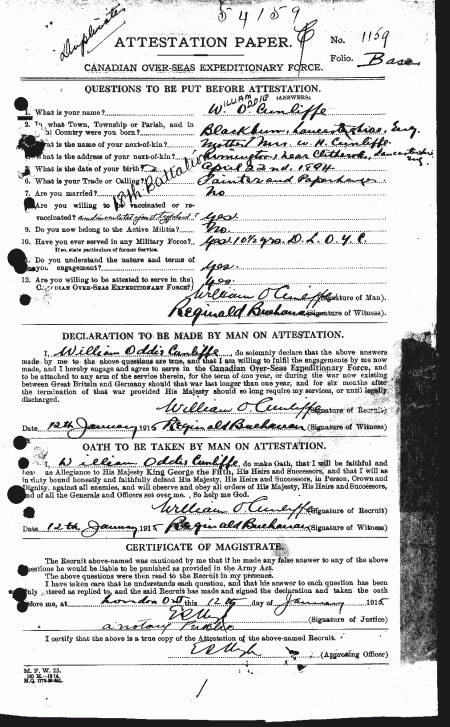 Duplicate
54159
ATTESTATION PAPER.
No. 1159
Folio. Base
CANADIAN OVER-SEAS EXPEDITIONARY FORCE.
QUESTIONS TO BE PUT BEFORE ATTESTATION.
(ANSWERS)
1. What is your name? William Oddie Cunliffe
2. In what Town, Township or Parish, and in
what Country were you born? Blackburn, Lancastershire, Eng.
What is the name of your next-of-kin? Mother Mrs. W. H. Cunliffe
What is the address of your next-of-kin? near Clitheroe, Lancastershire Eng.
What is the date of your birth? April 22nd. 1894
6. What is your Trade or Calling? Painter and Paperhanger
7. Are you married? No
18th Battalion
Are you willing to be vaccinated or re-
vaccinated? and inoculated against typhoid? Yes.
9. Do you now belong to the Active Militia? No
10. Have you ever served in any Military Force? Yes. 10½ yrs. D. L. O. Y. C.
If so, state particulars of former Service.
Do you understand the nature and terms of
your engagement? Yes.
12. Are you willing to be attested to serve in the
CANADIAN OVER-SEAS EXPEDITIONARY FORCE? Yes.
William O Cunliffe (Signature of Man).
Reginald Buchanan (Signature of Witness).
DECLARATION TO BE MADE BY MAN ON ATTESTATION.
I, William Oddie Cunliffe, do solemnly declare that the above answers
made by me to the above questions are true, and that I am willing to fulfil the engagements by me now
made, and I hereby engage and agree to serve in the Canadian Over-Seas Expeditionary Force, and
to be attached to any arm of the service therein, for the term of one year, or during the war now existing
between Great Britain and Germany should that war last longer than one year, and for six months after
the termination of that war provided His Majesty should so long require my services, or until legally
discharged.
William O Cunliffe (Signature of Recruit)
Date 12th January 1915 Reginald Buchanan (Signature of Witness)
OATH TO BE TAKEN BY MAN ON ATTESTATION.
I, William Oddie Cunliffe, do make Oath, that I will be faithful and
bear true Allegiance to His Majesty King George the Fifth, His Heirs and Successors, and that I will as
in duty bound honestly and faithfully defend His Majesty, His Heirs and Successors, in Person, Crown and
Dignity, against all enemies, and will observe and obey all orders of His Majesty, His Heirs and Successors,
and of all the Generals and Officers set over me. So help me God.
William O Cunliffe (Signature of Recruit)
Date 12th January 1915 Reginald Buchanan (Signature of Witness)
CERTIFICATE OF MAGISTRATE.
The Recruit above-named was cautioned by me that if he made any false answer to any of the above
questions he would be liable to be punished as provided in the Army Act.
The above questions were then read to the Recruit in my presence.
I have taken care that he understands each question, and that his answer to each question has been
duly entered as replied to, and the said Recruit has made and signed the declaration and taken the oath
before me, at London Ont this 12th day of January 1915
(Signature of Justice)
a notary Public
I certify that the above is a true copy of the Attestation of the above-named Recruit.
(Approving Officer)
M. F. W. 23.